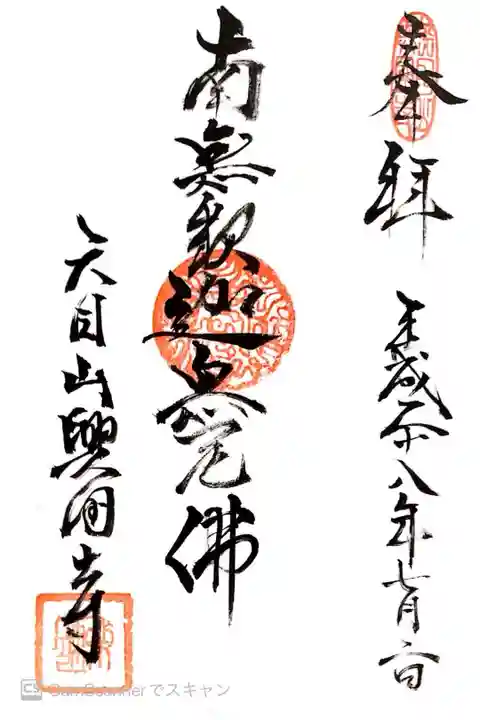 奉拝
平成二十八年七月六日
南無釈迦牟尼佛
天目山興国寺
CS CamScannerでスキャン